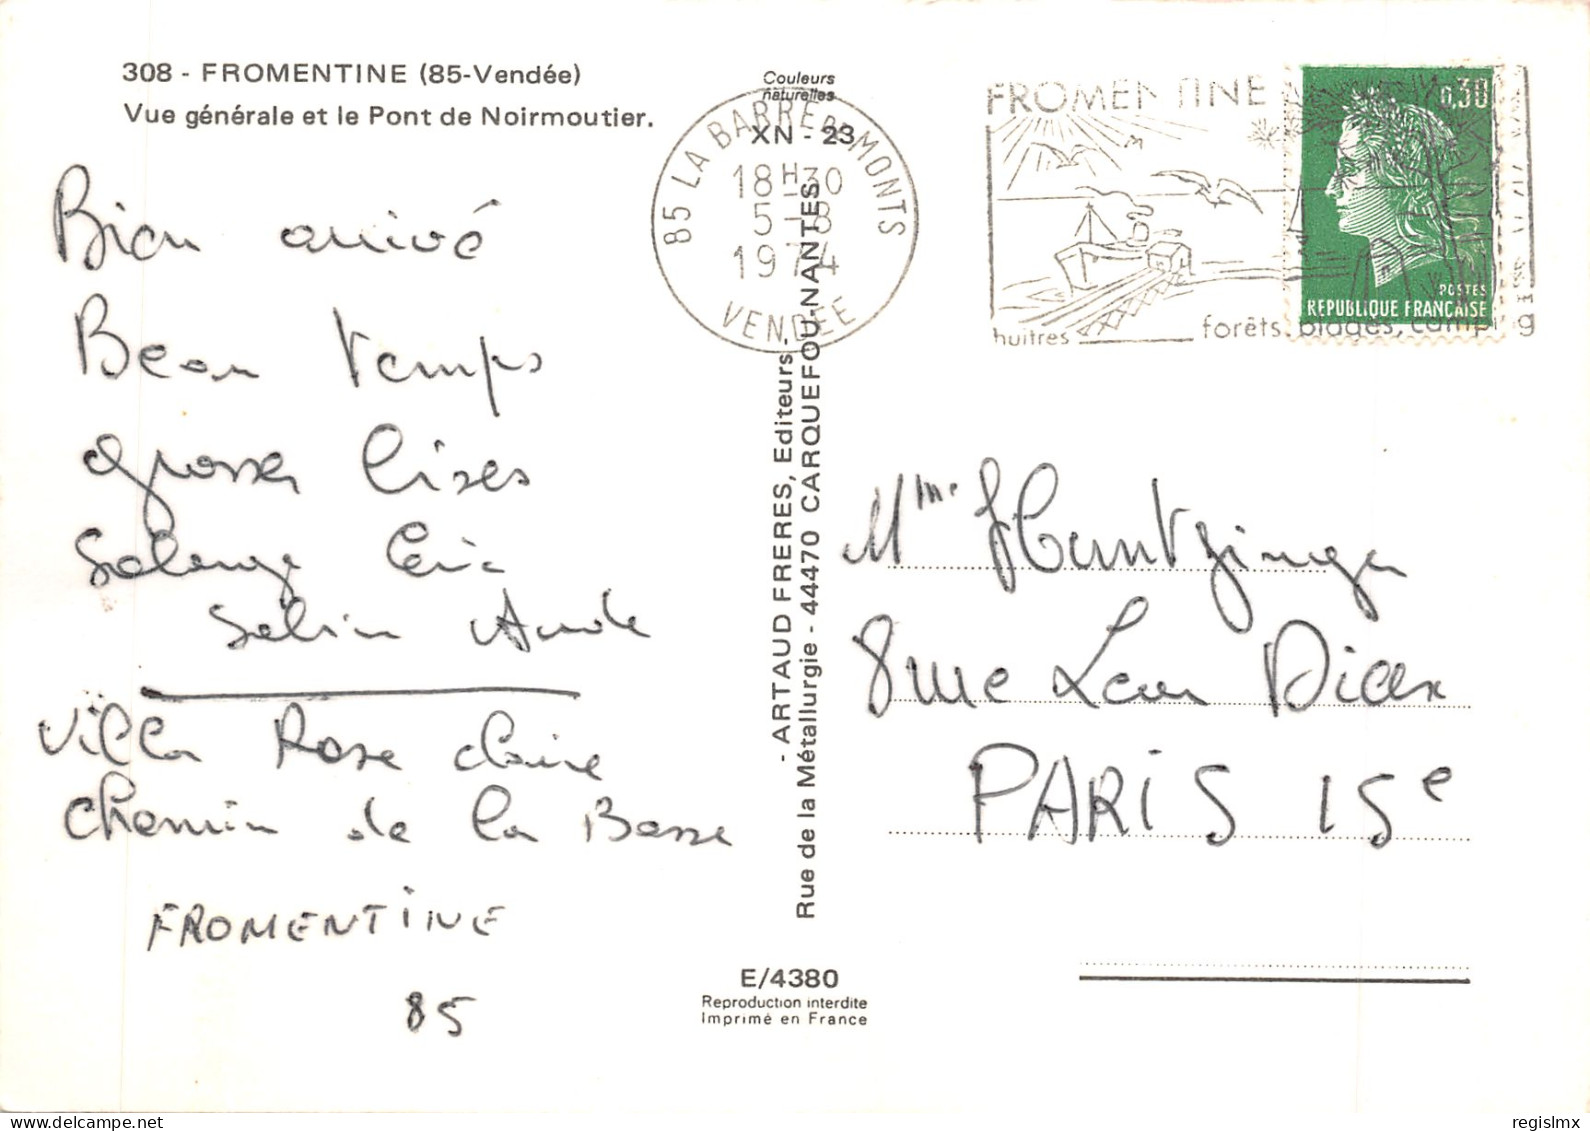 308 - FROMENTINE (85-Vendée)
Vue générale et le Pont de Noirmoutier.
Couleurs
naturelles
XN - 23
85 LA BARRE DE MONTS
18H30
5-8
1974
VENDÉE
FROMENTINE
huitres forêts, plages, camping
0,30
POSTES
REPUBLIQUE FRANÇAISE
Bien arrivé
Beau temps
grosses bises
Solange
Aude
Villa Rose claire
Chemin de la Basse
FROMENTINE
85
- ARTAUD FRERES, Editeurs,
Rue de la Métallurgie - 44470 CARQUEFOU-NANTES
Mme Huntzinger
8 rue Leon Dierx
PARIS 15e
E/4380
Reproduction interdite
Imprimé en France
regislmx